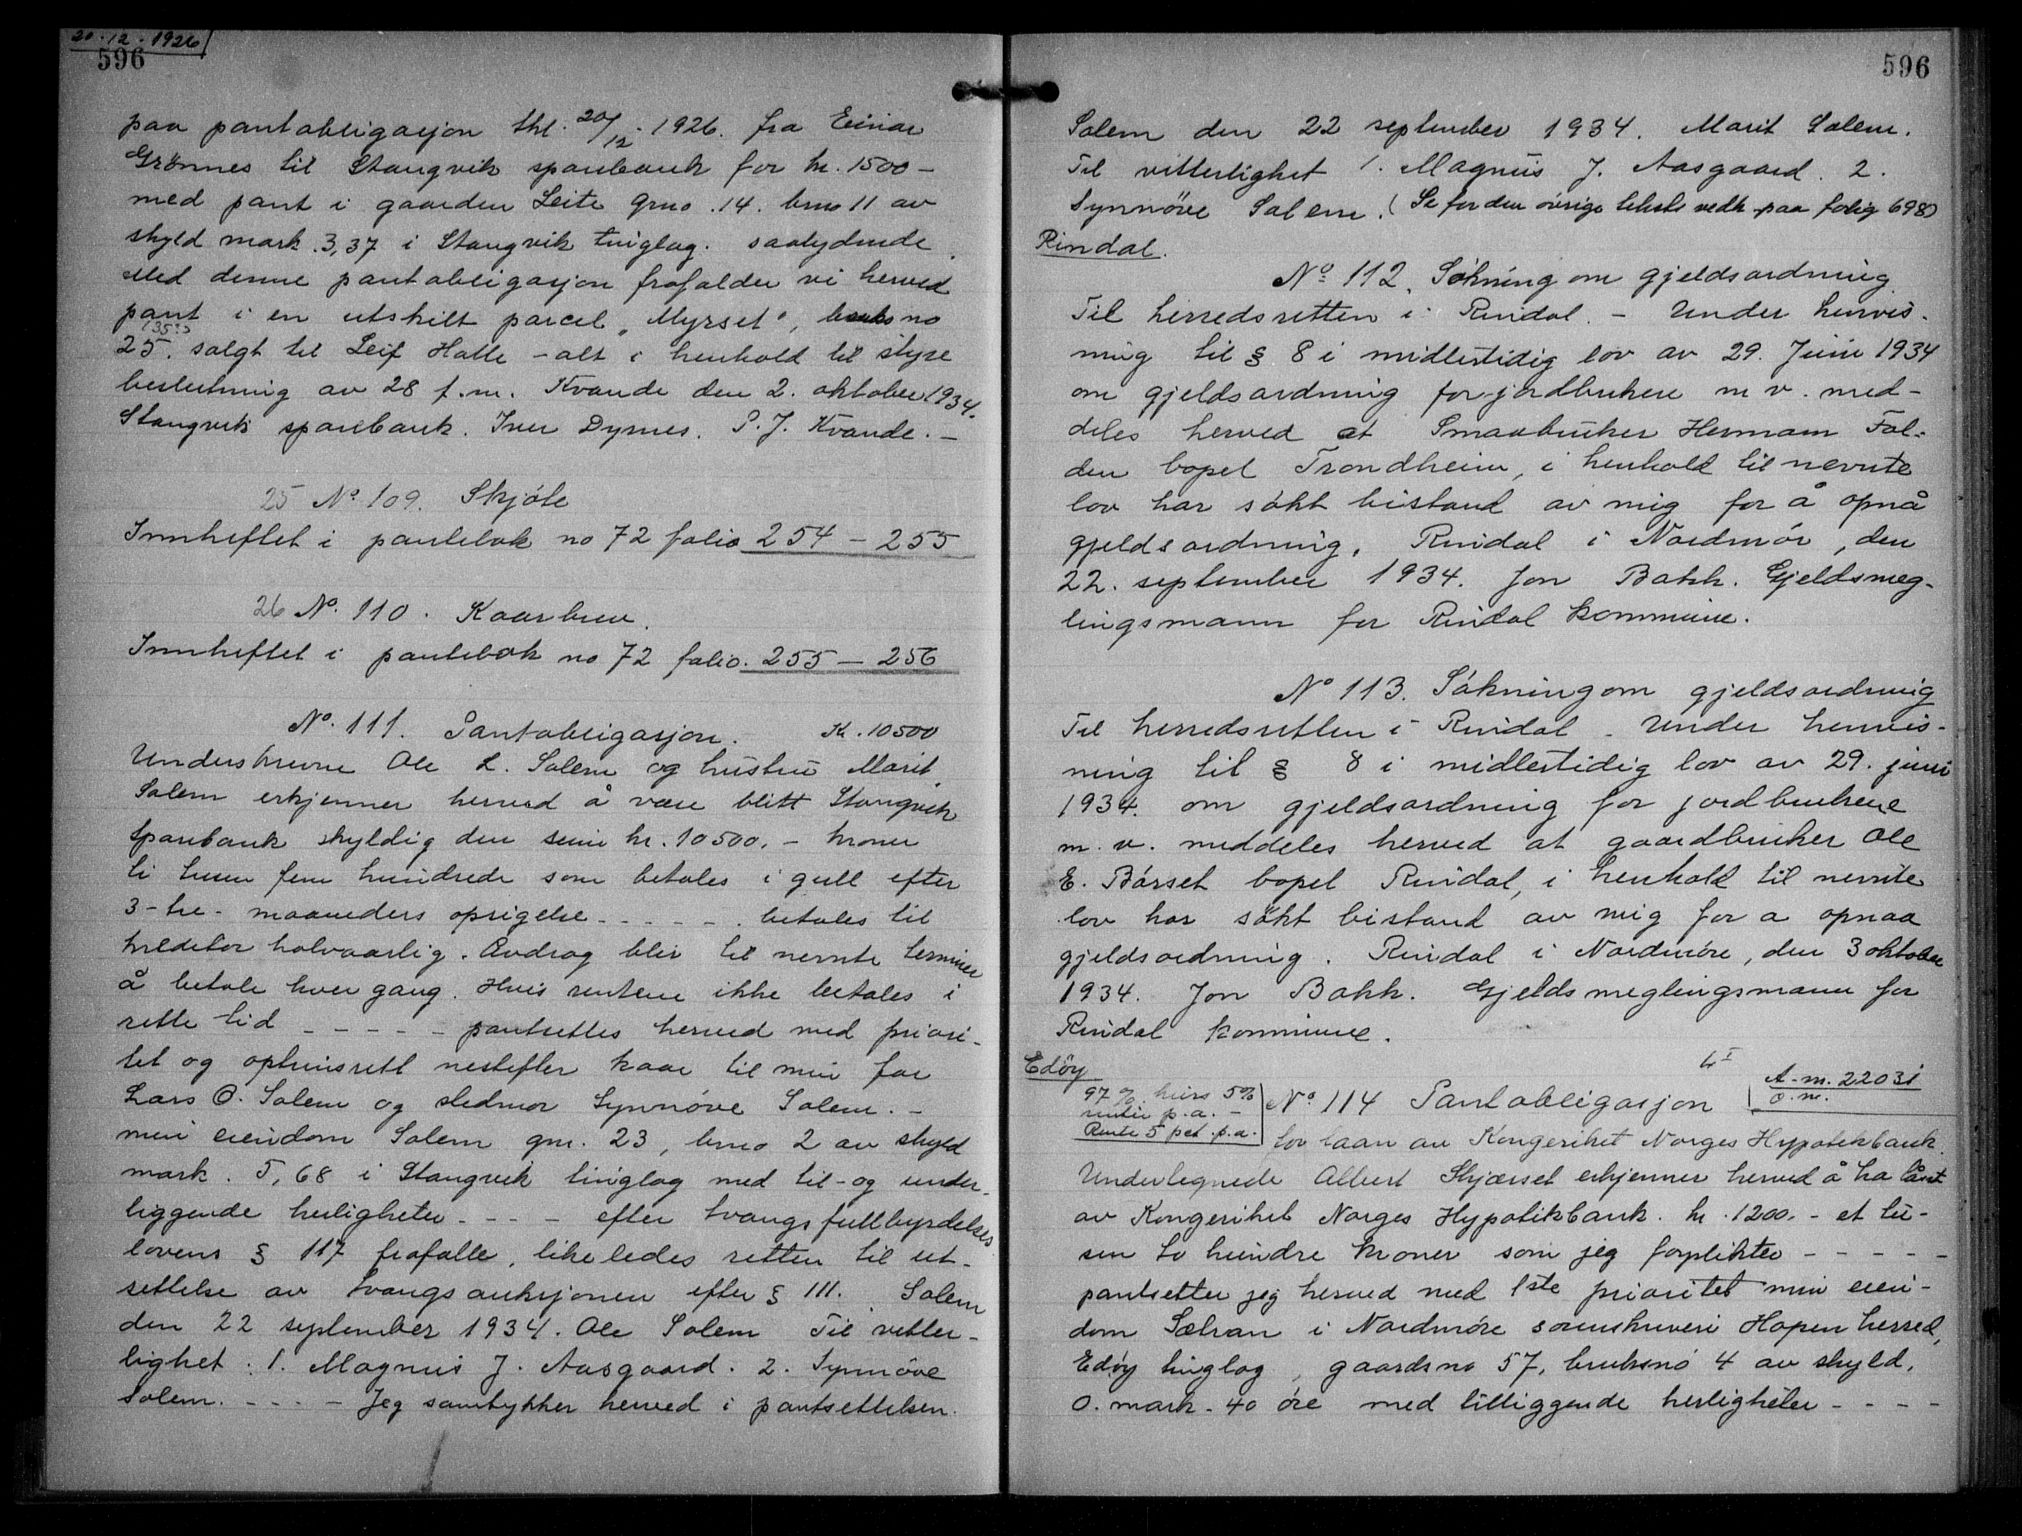 20-12-1926
596
paa pantobligasjon thl. 20/12. 1926. fra Einar
Grønnes til Stangvik sparebank for kr. 1500 –
med pant i gaarden Leite grno. 14. brno 11 av
skyld mark. 3,37 i Stangvik tinglag. saalydende.
Med denne pantobligasjon frafalder vi herved
pant i en utskilt parcel "Myrset", bruksno
25. solgt til Leif Halle – alt i henhold til styre
beslutning av 28 f.m. Kvande den 2. oktober 1934.
Stangvik sparebank. Iver Dyrnes. P. J. Kvande. –
25 No 109. Skjøte
Innheftet i pantebok no 72 folio 254 – 255
26 No. 110. Kaarbrev.
Innheftet i pantebok no 72 folio. 255 – 256
No. 111. Pantobligasjon. Kr. 10500
Underskrevne Ole L. Solem og hustru Marit
Solem erkjenner herved å være blitt Stangvik
Sparebank skyldig den sum kr. 10500. – kroner
ti tusen fem hundrede som betales i gull efter
3-tre- maaneders opsigelse - - - - - . betales til
kreditor halvaarlig. Avdrag blir til nevnte terminer
å betale hver gang. Hvis rentene ikke betales i
rette tid - - - - - pantsettes herved med priori-
tet og optrinsrett nestefter kaar til min far
Lars O. Solem og stedmor Synnøve Solem. –
min eiendom Solem gnr. 23, brno 2 av skyld
mark. 5,68 i Stangvik tinglag med til- og under-
liggende herligheter - - - - efter tvangsfullbyrdelses
lovens § 117 frafalle, likeledes retten til ut-
settelse av tvangsauksjonen efter § 111. Solem
den 22 september 1934. Ole Solem Til vitter-
lighet: 1. Magnus J. Aasgaard. 2. Synnøve
Solem. - - - - Jeg samtykker herved i pantsettelsen.
596
Solem den 22 september 1934. Marit Solem.
Til vitterlighet 1. Magnus J. Aasgaard. 2.
Synnøve Solem. (Se for den øvrige tekst vedk paa folio 698)
Rindal.
No 112. Søkning om gjeldsordning
Til herredsretten i Rindal. – Under henvis-
ning til § 8 i midlertidig lov av 29. Juni 1934
om gjeldsordning for jordbrukere m v. med-
deles herved at Smaabruker Hermann Fol-
den bopel Trondheim, i henhold til nevnte
lov har søkt bistand av mig for å opnå
gjeldsordning. Rindal i Nordmør, den
22. september 1934. Jon Bakk. Gjeldsmeg-
lingsmann for Rindal kommune.
No 113. Søkning om gjeldsordning
Til herredsretten i Rindal. Under henvis-
ning til § 8 i midlertidig lov av 29. juni
1934. om gjeldsordning for jordbrukere
m. v. meddeles herved at gaardbruker Ole
E. Børset bopel Rindal, i henhold til nevnte
lov har søkt bistand av mig for a opnaa
gjeldsordning. Rindal i Nordmøre, den 3 oktober
1934. Jon Bakk. Gjeldsmeglingsmann for
Rindal kommune.
Edøy
97 % kurs 5%
rente p.a. –
Rente 5 pct. p.a.
No 114 Pantobligasjon
A.-m. 22031
O. m.
for laan av Kongeriket Norges Hypotekbank.
Undertegnede Albert Skjærset erkjenner herved å ha lånt
av Kongeriket Norges Hypotekbank. kr. 1200. – et tu-
sen to hundre kroner som jeg forplikter - - - - -
pantsetter jeg herved med 1ste prioritet min eien-
dom Sætran i Nordmøre sorenskriveri Hopen herred,
Edøy tinglag, gaardsno 57, bruksno 4 av skyld.
0. mark. 40 øre med tilliggende herligheter - - - -